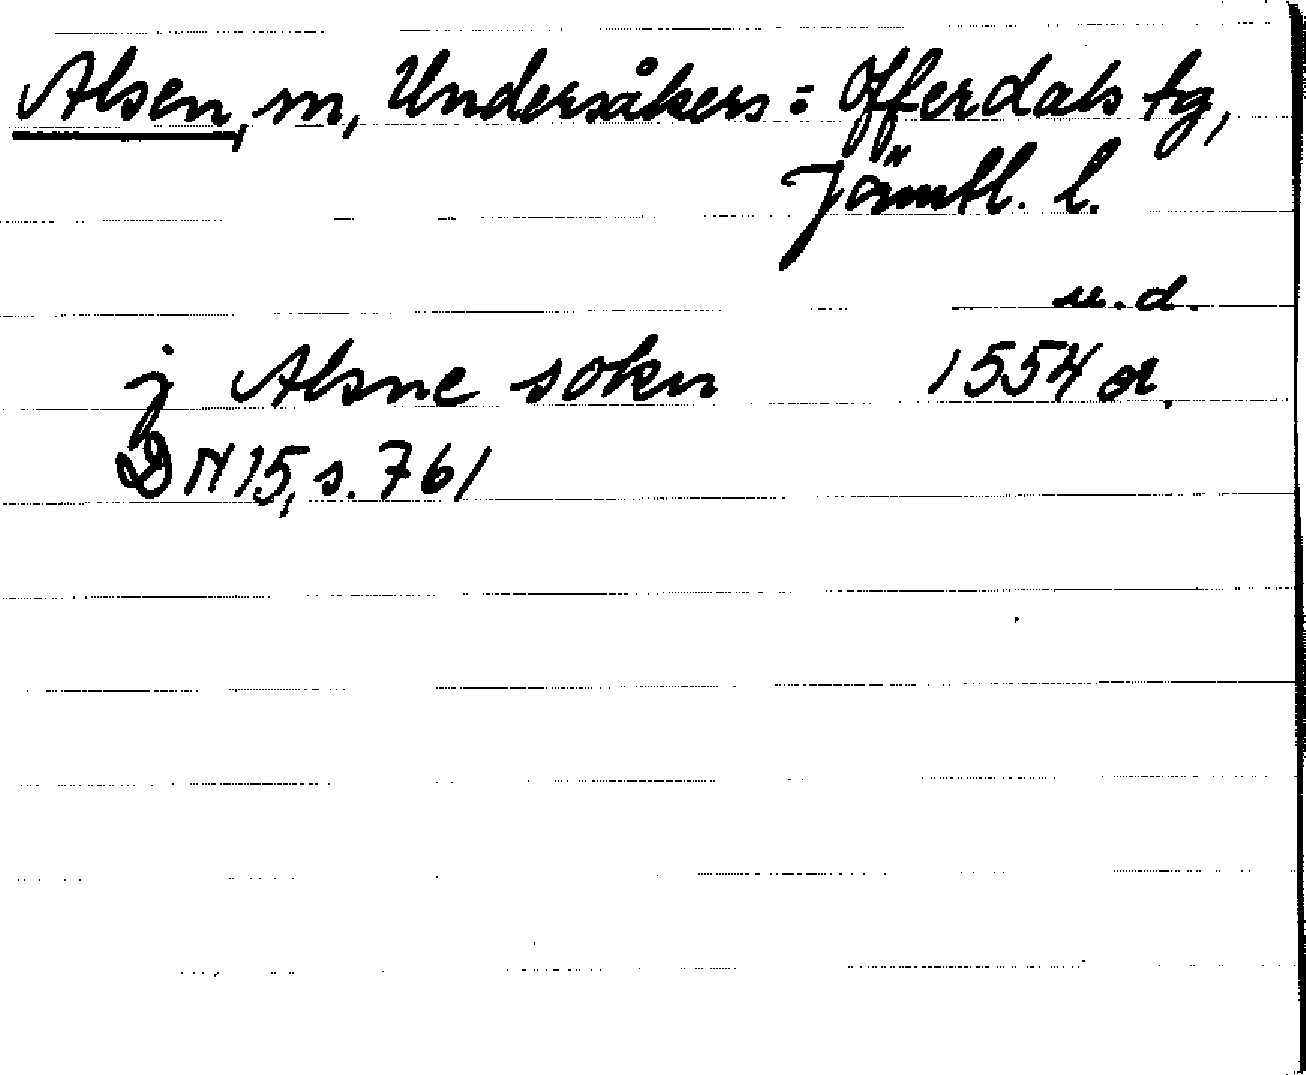 Alsen, sn, Undersåkers = Offerdals tg,
Jämtl. l.
u.d.
j Alsne sokn 1554 or.
DN 15, s. 761